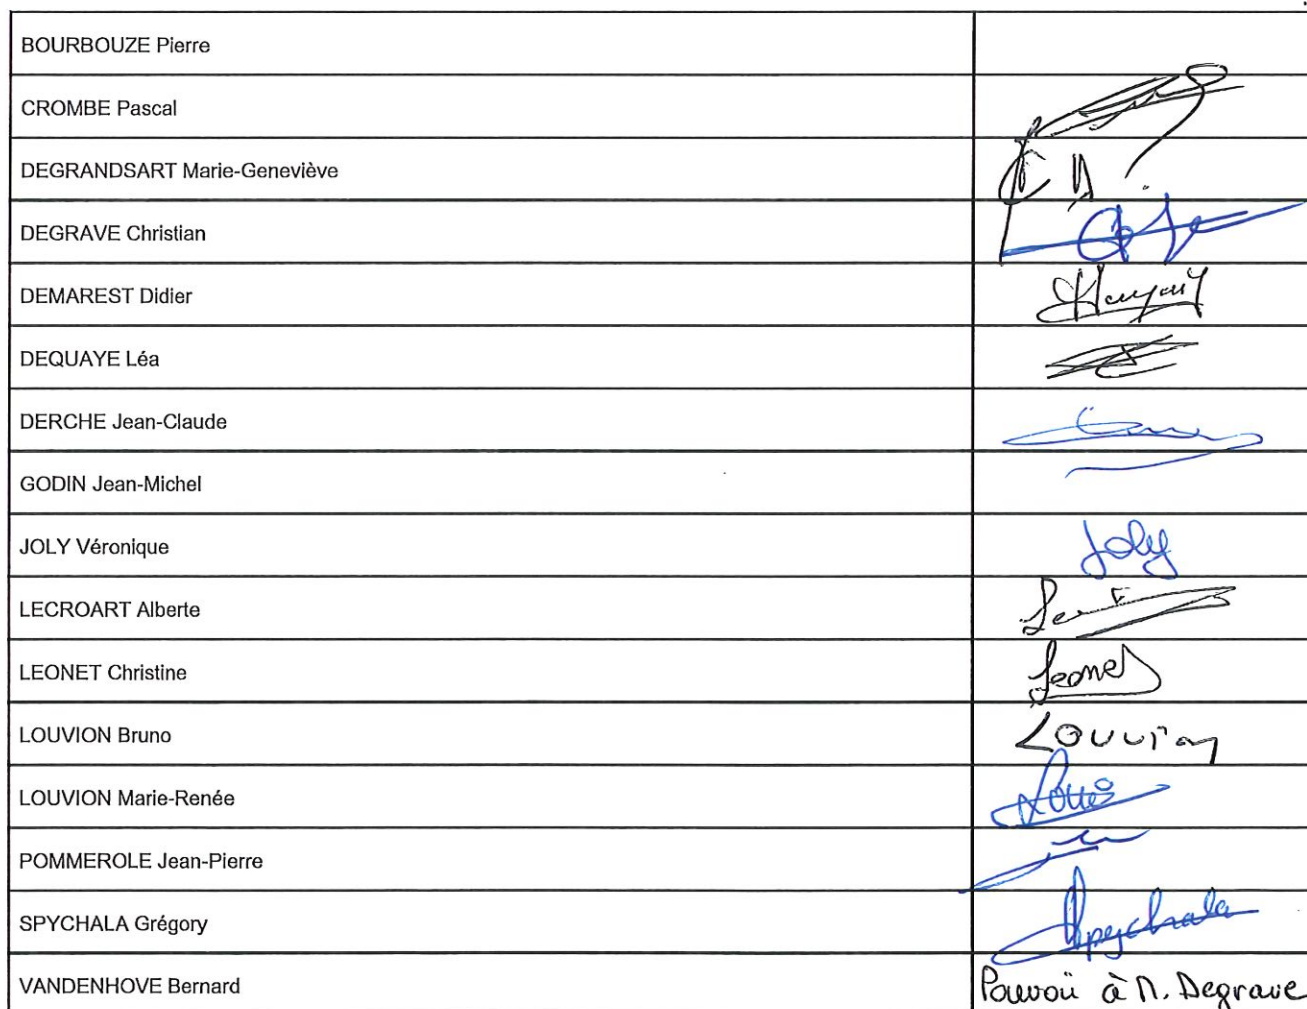 BOURBOUZE Pierre
CROMBE Pascal
DEGRANDSART Marie-Geneviève
DEGRAVE Christian
DEMAREST Didier
DEQUAYE Léa
DERCHE Jean-Claude
GODIN Jean-Michel
JOLY Véronique Joly
LECROART Alberte
LEONET Christine Leonet
LOUVION Bruno LOUVION
LOUVION Marie-Renée
POMMEROLE Jean-Pierre
SPYCHALA Grégory Spychala
VANDENHOVE Bernard Pouvoir à M. Degrave